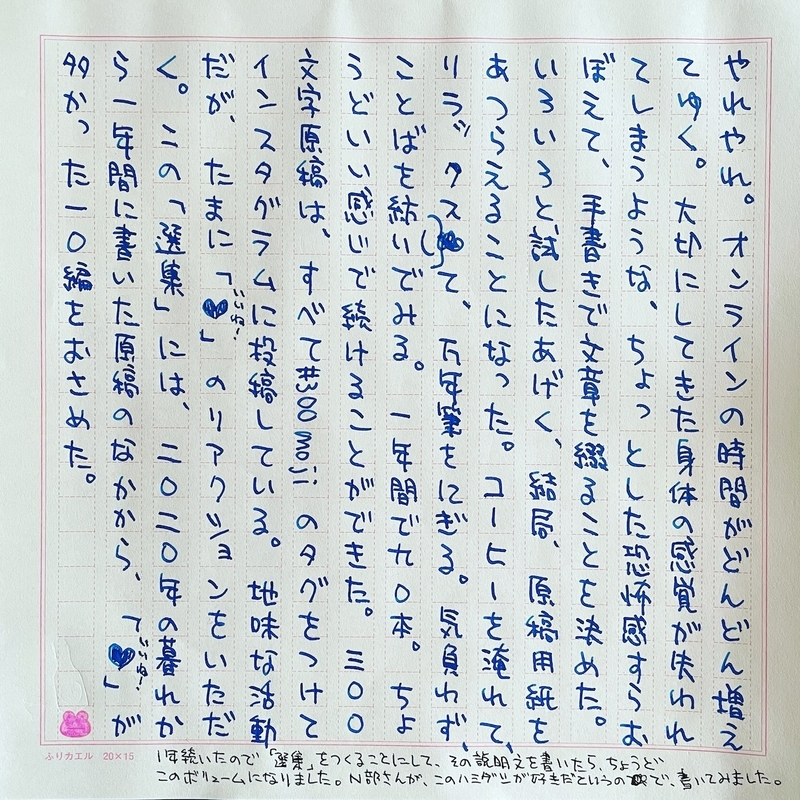 やれやれ。オンラインの時間がどんどん増え
てゆく。大切にしてきた身体の感覚が失われ
てしまうような、ちょっとした恐怖感すらお
ぼえて、手書きで文章を綴ることを決めた。
いろいろと試したあげく、結局、原稿用紙を
あつらえることになった。コーヒーを淹れて、
リラックスして、万年筆をにぎる。気負わず、
ことばを紡いでみる。一年間で九〇本。ちょ
うどいい感じで続けることができた。三〇〇
文字原稿は、すべて#300mojiのタグをつけて
インスタグラムに投稿している。地味な活動
いいね!
だが、たまに「♥」のリアクションをいただ
く。この「選集」には、二〇二〇年の暮れか
いいね!
ら一年間に書いた原稿のなかから、「♥」が
多かった一〇編をおさめた。
ふりカエル 20×15
1年続いたので「選集」をつくることにして、その説明文を書いたら、ちょうど
このボリュームになりました。N部さんが、このハミダシが好きだというので、書いてみました。